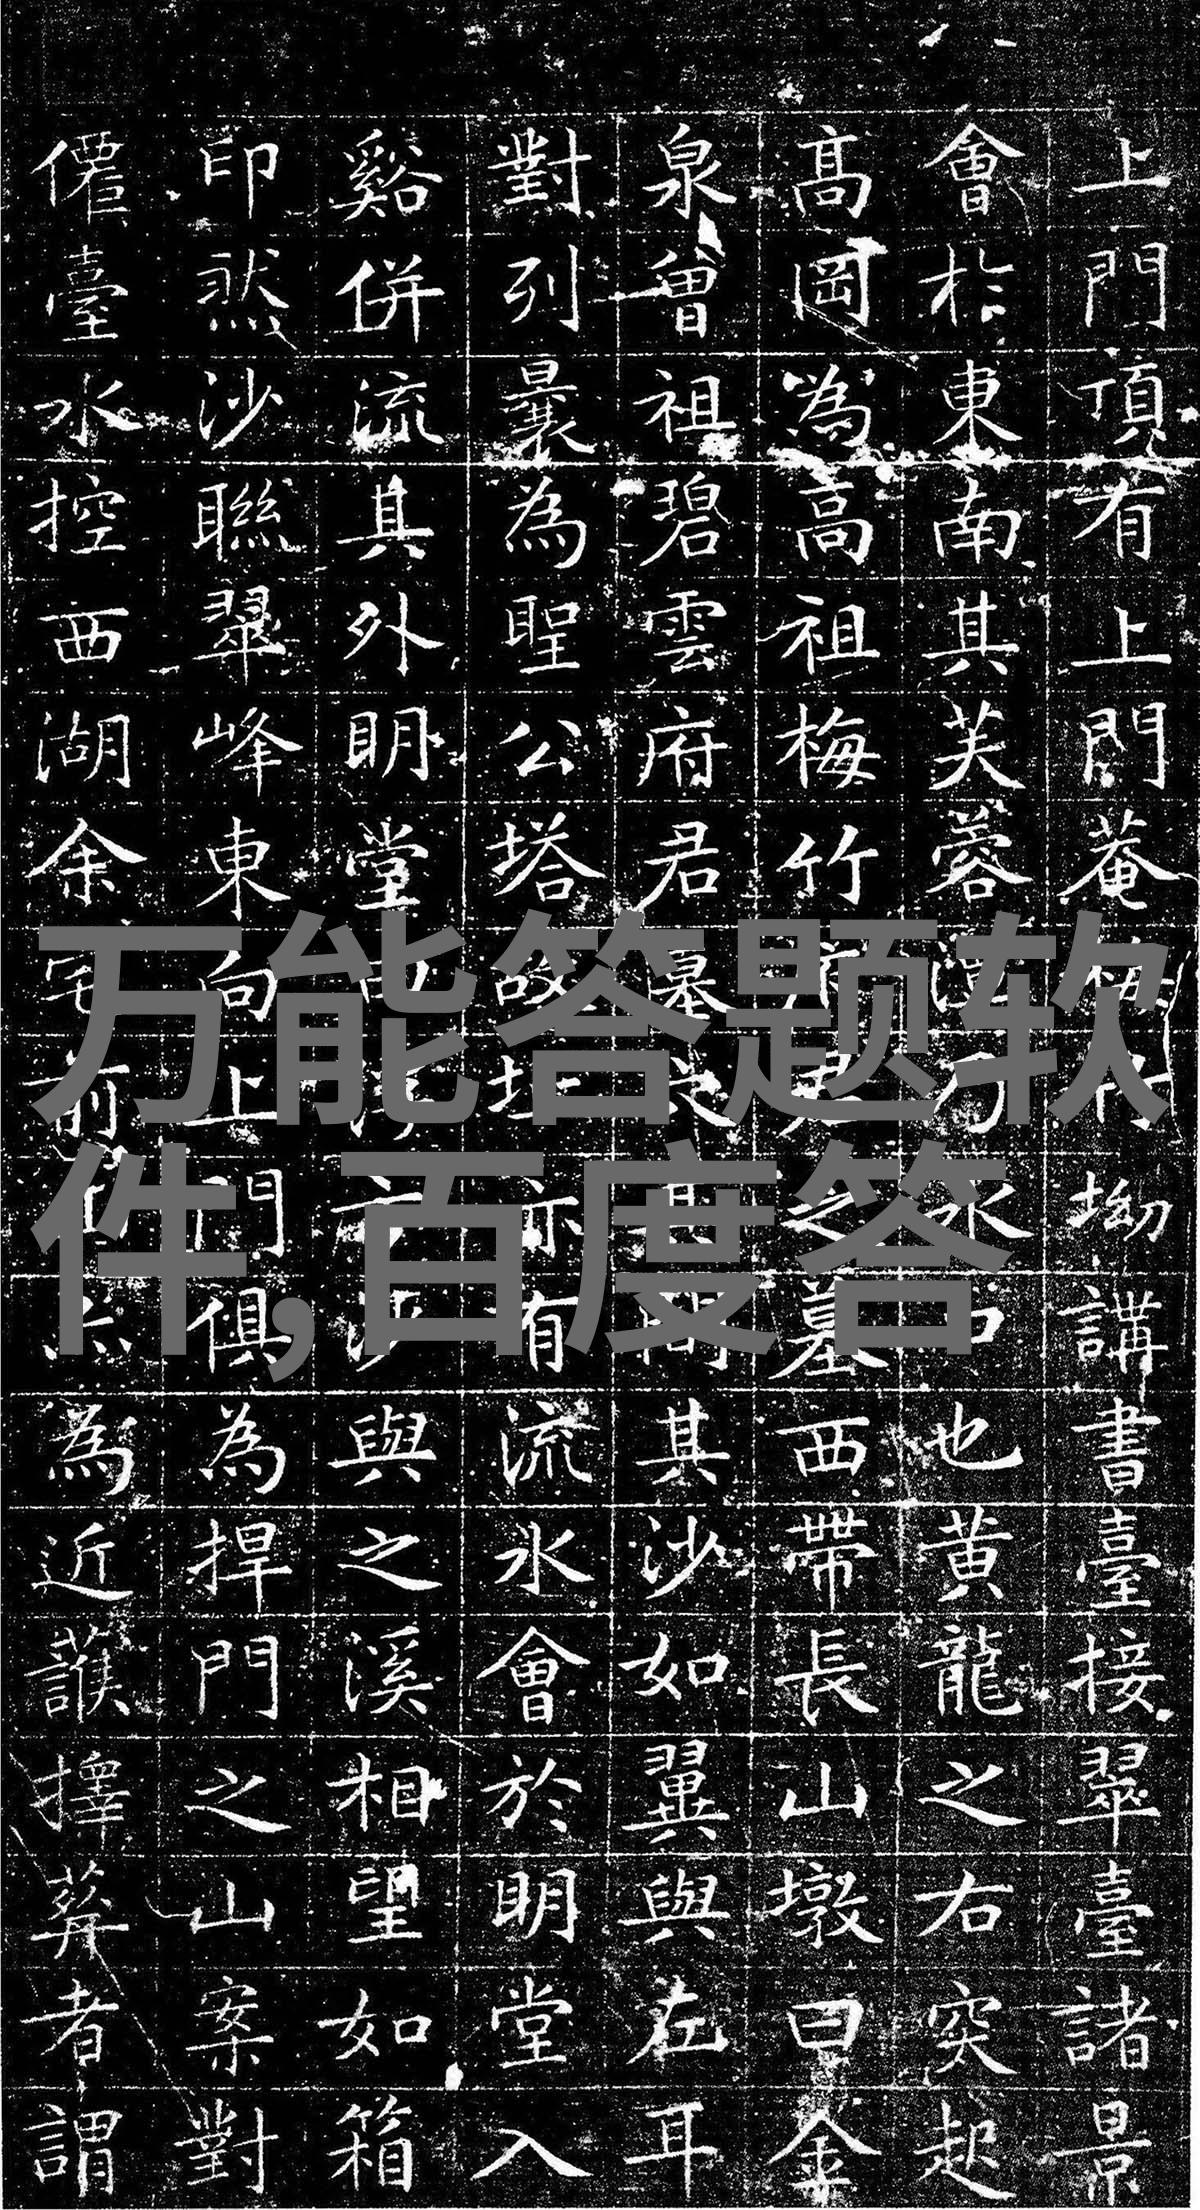 上門頂有上門菴梅坳講書臺接翠臺諸景
會扵東南其芙蓉潭水口也黃龍之右突起
高岡為高祖梅竹君之墓西帶長山墩曰金
泉曾祖碧雲府君墓其間其沙如翼與左耳
對列曩為聖公塔故址亦有流水會於明堂入
谿併流其外明堂沙與之溪相望如箱
印然沙聯翠峰東向上門俱為捍門之山案對
僊臺水控西湖余宅前為近護擇葬者謂
万能答题软
件,百度答